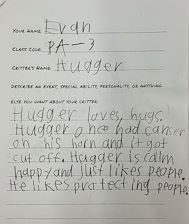 YOUR NAME: Evan
CLASS CODE: PA-3
CRITTER'S NAME: Hugger
DESCRIBE AN EVENT, SPECIAL ABILITY, PERSONALITY, OR ANYTHING
ELSE YOU WANT ABOUT YOUR CRITTER:
Hugger loves hugs.
Hugger once had canser
on his horn and it got
cut off. Hugger is calm
happy and just likes people.
He likes protecting people.